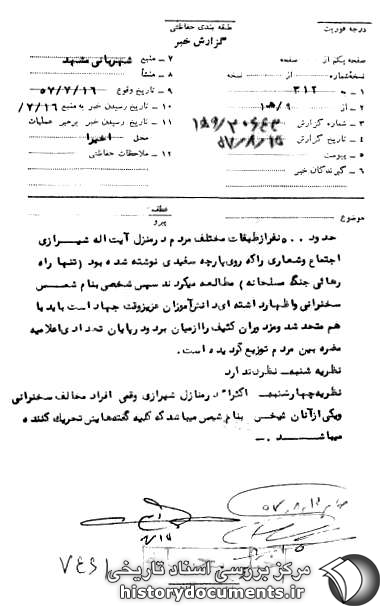 طبقه بندی حفاظتی
درجه فوریت
گزارش خبر
صفحه یکم از صفحه
نسخه شماره از نسخه
۱ ـ به ۳۱۲
۲ ـ از ۹/ه۱
۳ ـ شماره گزارش
۴ ـ تاریخ گزارش ۵۷/۸/۱۵
۵ ـ پیوست
۶ ـ گیرندگان خبر
۷ ـ منبع شهربانی مشهد
۸ ـ منشأ
۹ ـ تاریخ وقوع ۵۷/۷/۱۶
۱۰ ـ تاریخ رسیدن خبر به منبع ۷/۱۶/
۱۱ ـ تاریخ رسیدن خبر برهبر عملیات
محل اخیرا
۱۲ ـ ملاحظات حفاظتی
موضوع
عطف
پیرو
حدود ۵۰۰ نفر از طبقات مختلف مردم در منزل آیت اله شیرازی
اجتماع و شعاری را که روی پارچه سفیدی نوشته شده بود (تنها راه
رهائی جنگ مسلحانه) مطالعه میکردند سپس شخصی بنام شمس
سخنرانی و اظهار داشته ای دانش آموزان عزیز وقت جهاد است باید با
هم متحد شد و مزدوران کثیف را از میان برد و در پایان تعدادی اعلامیه
مضره بین مردم توزیع گردیده است.
نظریه شنبه. نظری ندارد
نظریه چهارشنبه. اکثرا در منازل شیرازی وقمی افراد مخالف سخنرانی
و یکی از آنان شخصی بنام شمس میباشد که کلیه گفته هایش تحریک کننده
میباشد.ـ
۸/۱۵
مرکز بررسی اسناد تاریخی
historydocuments.ir